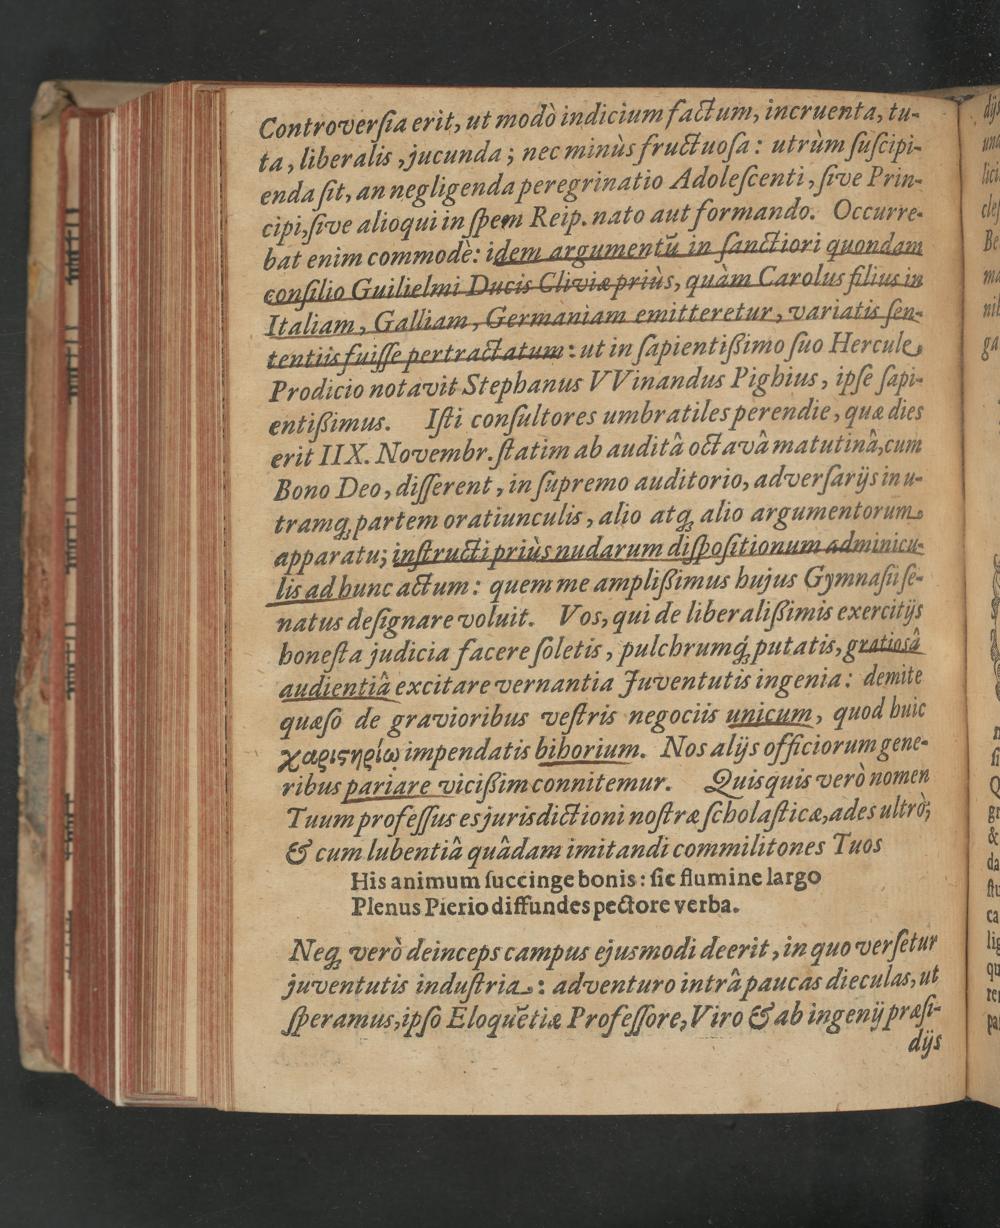 Controverſia erit, ut modò indicium factum, incruenta, tu-
ta, liberalis, jucunda; nec minùs fructuoſa: utrùm ſuſcipi-
enda ſit, an negligenda peregrinatio Adoleſcenti, ſive Prin-
cipi, ſive alioqui in ſpem Reip. nato aut formando. Occurre-
bat enim commodè: idem argumentũ in ſanctiori quondam
conſilio Guilielmi Ducis Cliviæ priùs, quàm Carolus filius in
Italiam, Galliam, Germaniam emitteretur, variatis ſen-
tentiis fuiſſe pertractatum: ut in ſapientißimo ſuo Hercule
Prodicio notavit Stephanus VVinandus Pighius, ipſe ſapi-
entißimus. Iſti conſultores umbratiles perendie, quæ dies
erit IIX. Novembr. ſtatim ab auditâ octavâ matutinâ, cum
Bono Deo, diſſerent, in ſupremo auditorio, adverſarijs in u-
tramq́ partem oratiunculis, alio atq́ alio argumentorum
apparatu; inſtructi priùs nudarum diſpoſitionum adminicu-
lis ad hunc actum: quem me amplißimus hujus Gymnaſii ſe-
natus deſignare voluit. Vos, qui de liberalißimis exercitijs
honeſta judicia facere ſoletis, pulchrumq́ putatis, gratiosâ
audientiâ excitare vernantia Juventutis ingenia: demite
quæſo de gravioribus veſtris negociis unicum, quod huic
χαριςηρίῳ impendatis bihorium. Nos alijs officiorum gene-
ribus pariare vicißim connitemur. Quisquis verò nomen
Tuum profeſſus es jurisdictioni noſtræ ſcholaſticæ, ades ultrò;
& cum lubentiâ quâdam imitandi commilitones Tuos
His animum ſuccinge bonis: ſic flumine largo
Plenus Pierio diffundes pectore verba.
Neq́ verò deinceps campus ejusmodi deerit, in quo verſetur
juventutis induſtria: adventuro intrâ paucas dieculas, ut
ſperamus, ipſo Eloquẽtiæ Profeſſore, Viro & ab ingenij præſi-
dijs